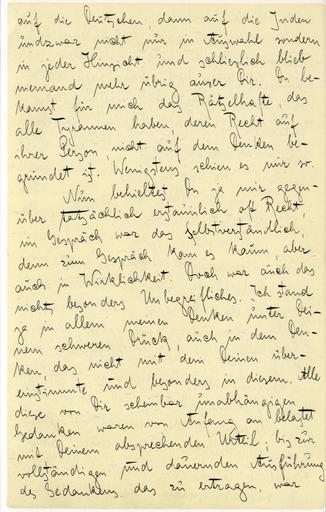 auf die Deutschen, dann auf die Juden
undzwar nicht nur in Auswahl sondern
in jeder Hinsicht und schliesslich blieb
niemand mehr übrig ausser Dir. Du be-
kamst für mich das Rätselhafte, das
alle Tyrannen haben, deren Recht auf
ihrer Person, nicht auf dem Denken be-
gründet ist. Wenigstens schien es mir so.
Nun behieltest Du ja mir gegen-
über tatsächlich erstaunlich oft Recht,
im Gespräch war das selbstverständlich,
denn zum Gespräch kam es kaum, aber
auch in Wirklichkeit. Doch war auch das
nichts besonders Unbegreifliches. Ich stand
ja in allem meinem Denken unter Dei-
nem schweren Druck, auch in dem Den-
ken, das nicht mit dem Deinen über-
einstimmte und besonders in diesem. Alle
diese von Dir scheinbar unabhängigen
Gedanken waren von Anfang an belastet
mit Deinem absprechenden Urteil; bis zur
vollständigen und dauernden Ausführung
des Gedankens das zu ertragen, war